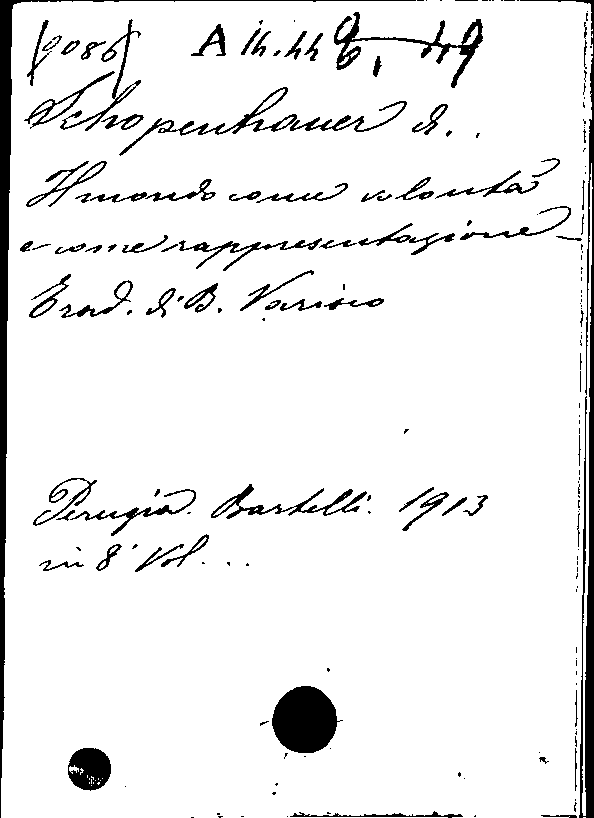 (9086) A 14.44 49
Schopenhauer A. .
Il mondo come volontà
e come rappresentazione -
Trad. di B. Varisco
Perugia. Bartelli. 1913
in 8° Vol. ...